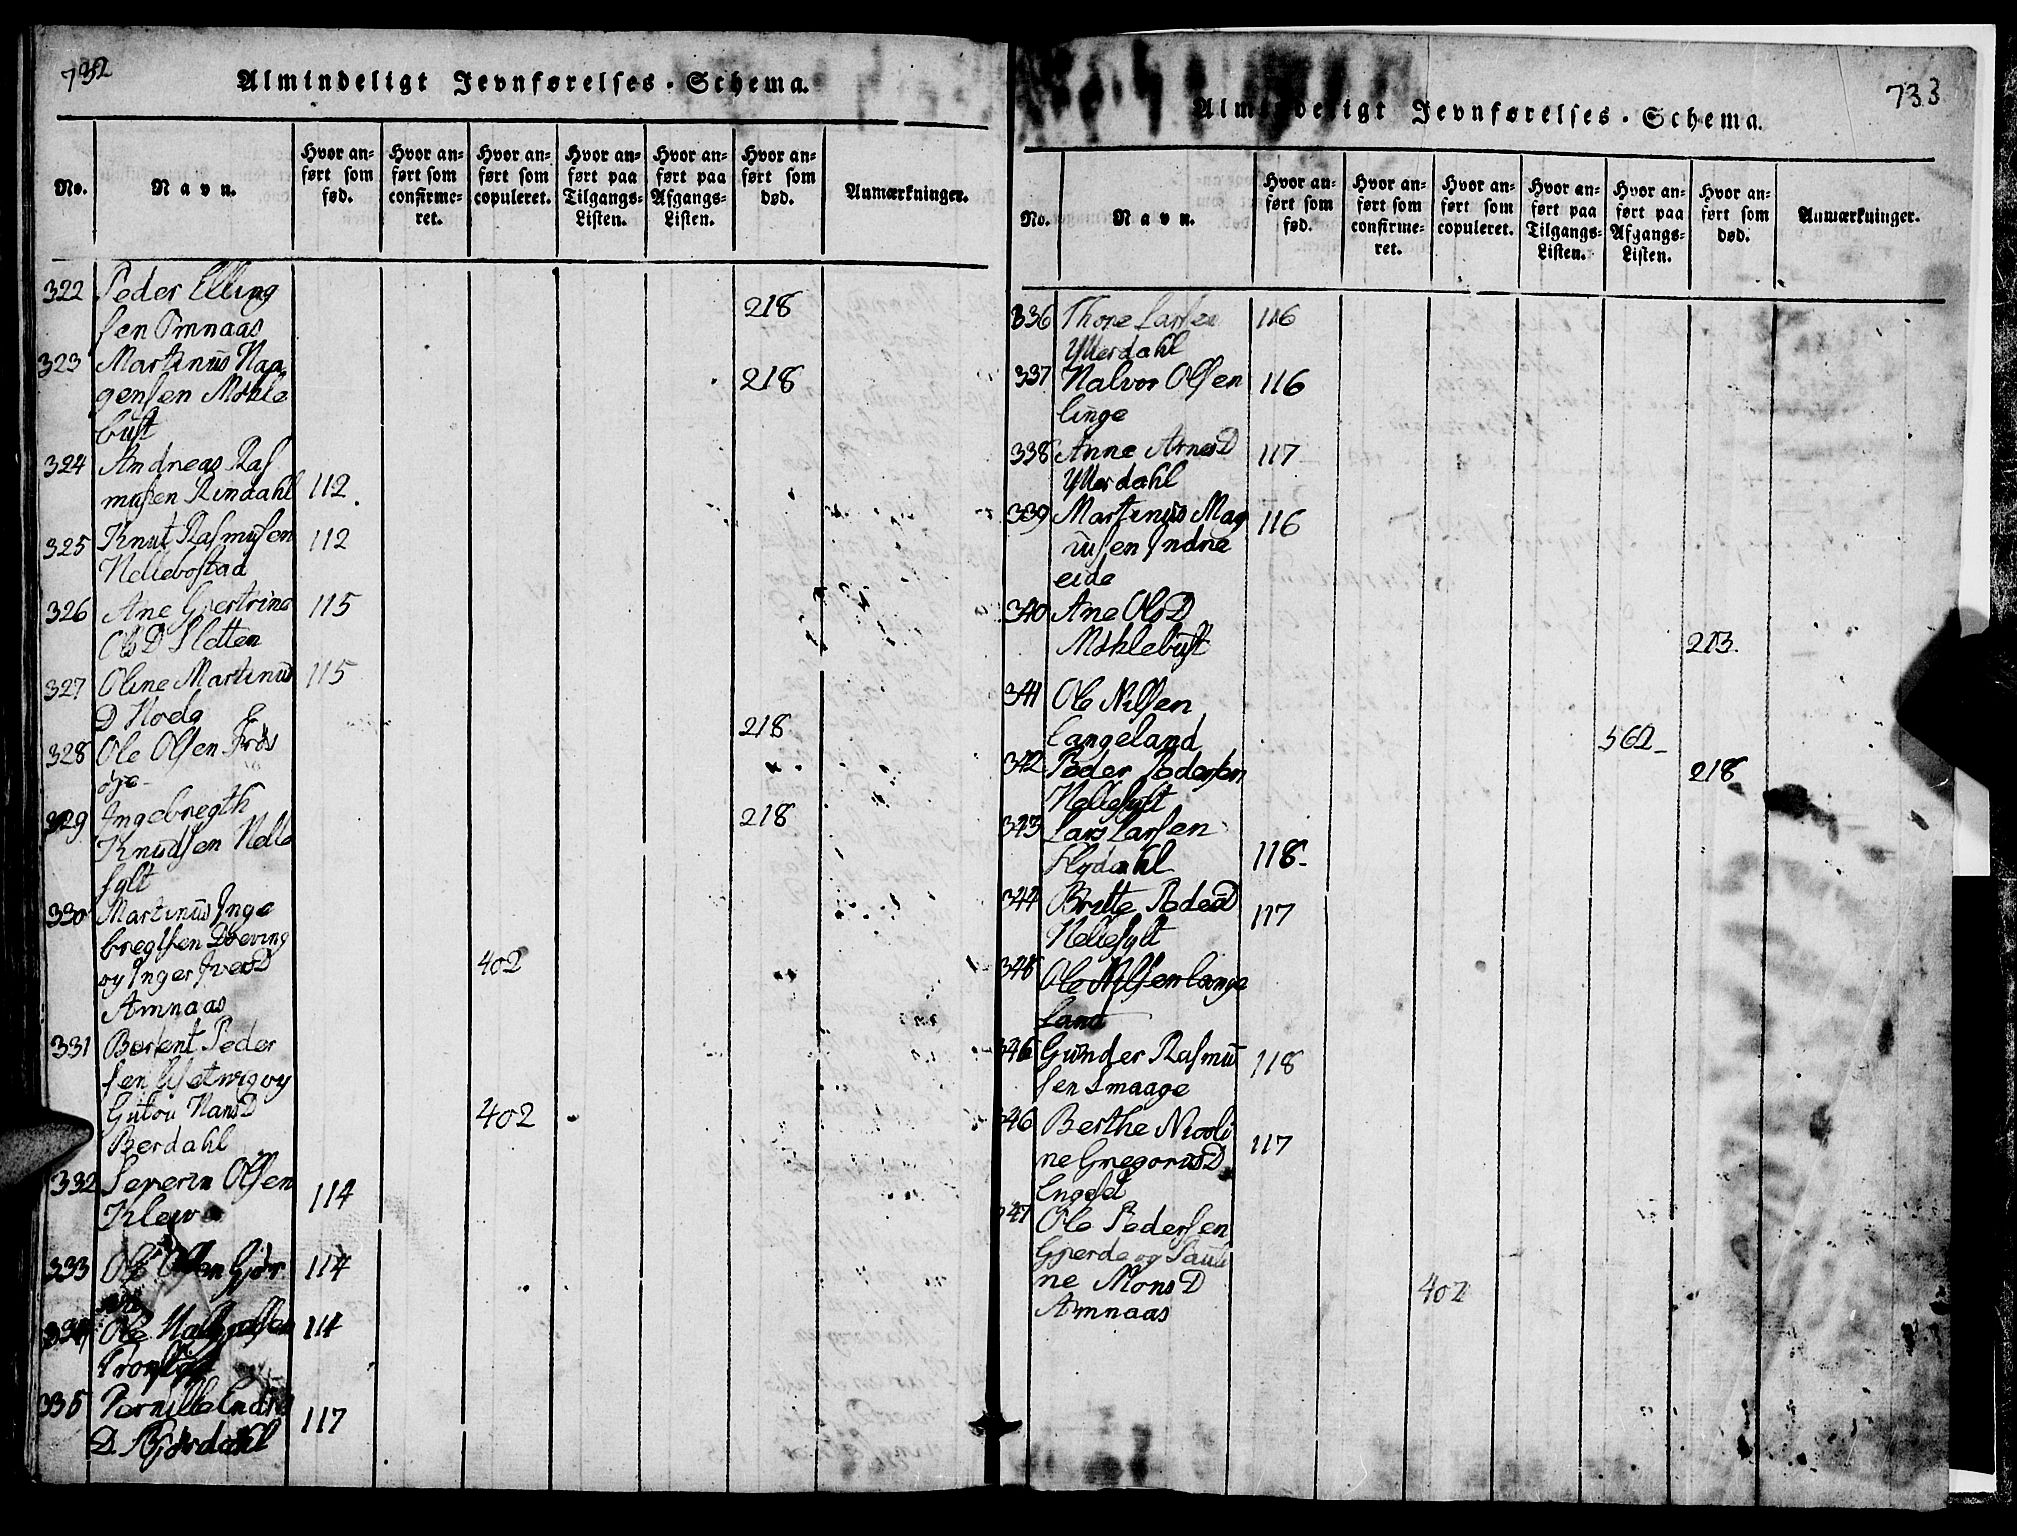 732
Almindeligt Jevnførelses-Schema.
No. Navn. Hvor anført som fød. Hvor anført som confirmeret. Hvor anført som copuleret. Hvor anført paa Tilgangs-Listen. Hvor anført paa Afgangs-Listen. Hvor anført som død. Anmærkninger.
322 Peder Elling
sen Omnaas 218
323 Martinus Haa
gensen Mükle 218
bust
324 Andreas Ras
musen Rindahl 112
325 Knut Rasmusen 112
Hellebostad
326 Ane Giertrine 115
Ols D Sletten
327 Oline Martinus 115
D Hoele
328 Ole Olsen Frøs 218
øye
329 Ingebregth 218
Knudsen Helle
sylt
330 Martinus Inge
bregtsen Døeving
og Inger Ivers D 402
Amnaas
331 Berent Peder
sen og
Guton Hans D 402
Berdahl
332 Severin Olsen 114
Klew
333 Ole Olsen Gjør 114
334 Ole 114
335 Pernille Endres 117
D. Bjørdahl
733
Almindeligt Jevnførelses-Schema.
No. Navn. Hvor anført som fød. Hvor anført som confirmeret. Hvor anført som copuleret. Hvor anført paa Tilgangs-Listen. Hvor anført paa Afgangs-Listen. Hvor anført som død. Anmærkninger.
336 Thore Larsen 116
Ytterdahl
337 Halvor Olsen 116
linge
338 Anne Arnes D 117
Ytterdahl
339 Martinus Mag 116
nusen Indre
eide
340 Ane Ols D
Møklebust 213.
341 Ole Nilsen
Langeland 562
342 Peder Pedersen 218
Hellesylt
343 Lars Larsen
Flydahl 118
344 Britte Peders D 117
Hellesylt
345 Ole Nilsen Lange
land
346 Gunder Rasmu 118
sen Smaage
346 Berthe Nicoli
ne Gregorius D 117
Engeset
347 Ole Pedersen
Gjerde og Pauli
ne Mons D 402
Amnaas